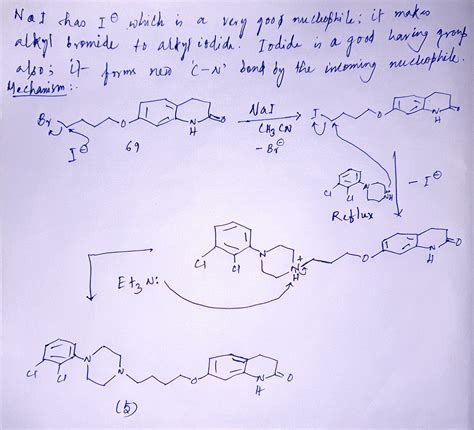 NaI has I⊖ which is a very good nucleophile; it makes
alkyl bromide to alkyl iodide. Iodide is a good leaving group
also; it forms new 'C-N' bond by the incoming nucleophile.
Mechanism:-
Br O N H O NaI CH3CN - Br⊖ I O N H O
I⊖ 69
Cl Cl N NH - I⊖
Reflux
Cl Cl N N+ H O N H O
Et3N:
Cl Cl N N O N H O
(5)